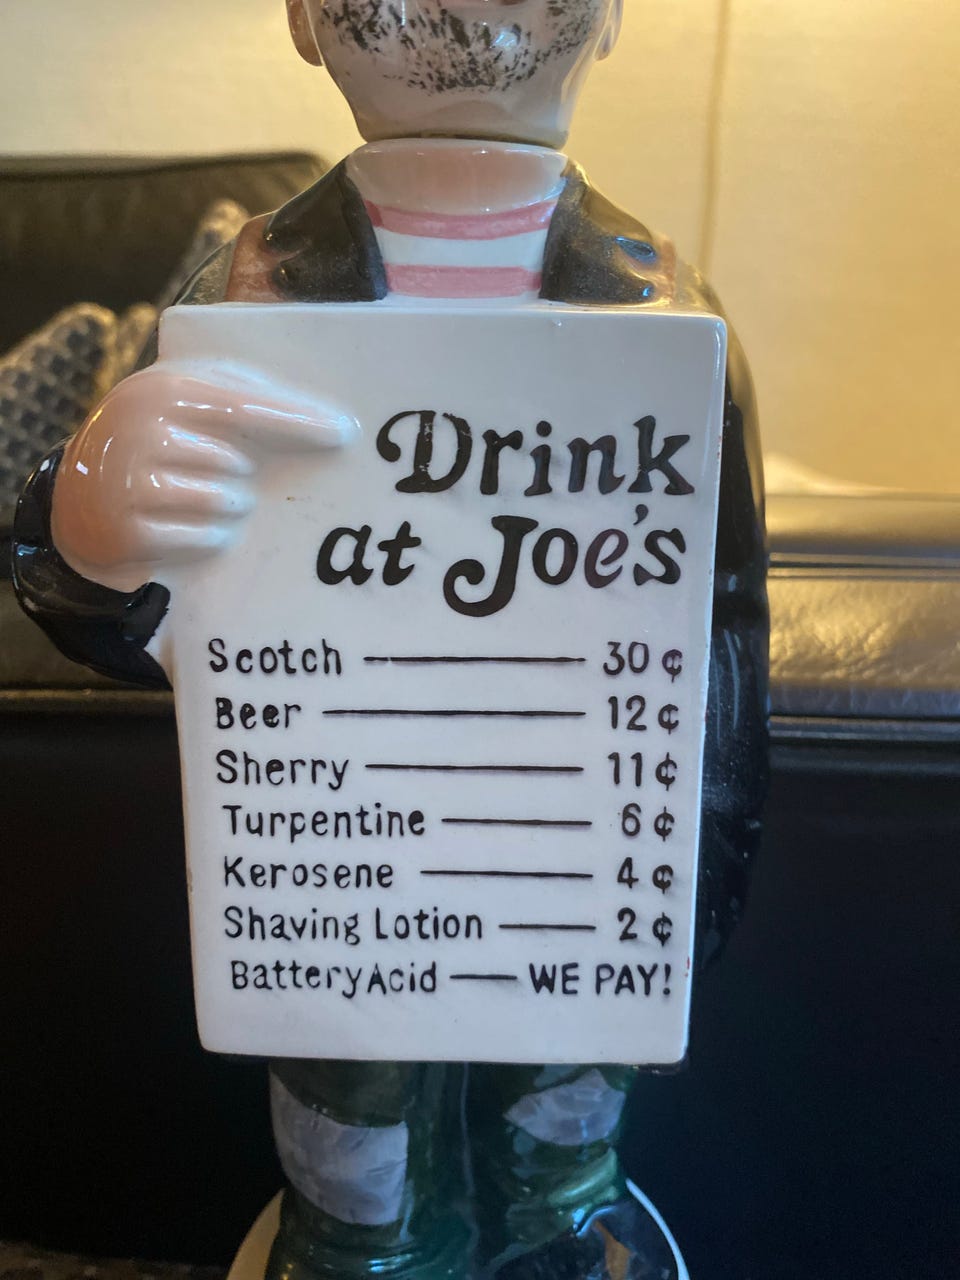 Drink
at Joe's
Scotch — 30 ¢
Beer — 12 ¢
Sherry — 11 ¢
Turpentine — 6 ¢
Kerosene — 4 ¢
Shaving Lotion — 2 ¢
Battery Acid — WE PAY!